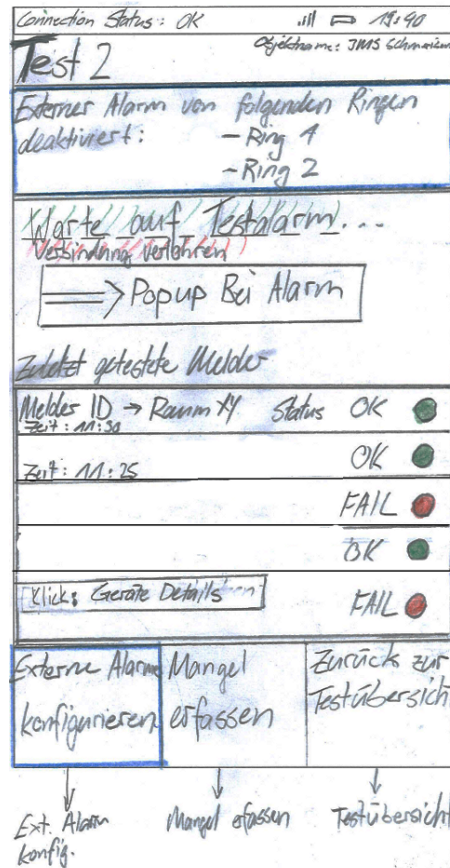 Connection Status: OK 19:40
Objektname: JMS Schmerikon
Test 2
Externer Alarm von folgenden Ringen
deaktiviert: - Ring 4
- Ring 2
Warte auf Testalarm...
Verbindung verlohren
Popup Bei Alarm
Zuletzt getestete Melder
Melder ID → Raum XY Status OK
Zeit: 11:30
OK
Zeit: 11:25
FAIL
OK
Klick: Geräte Details
FAIL
Externe Alarme Mangel Zurück zur
konfigurieren erfassen Testübersicht
Ext. Alarm Mangel erfassen Testübersicht
konfig.